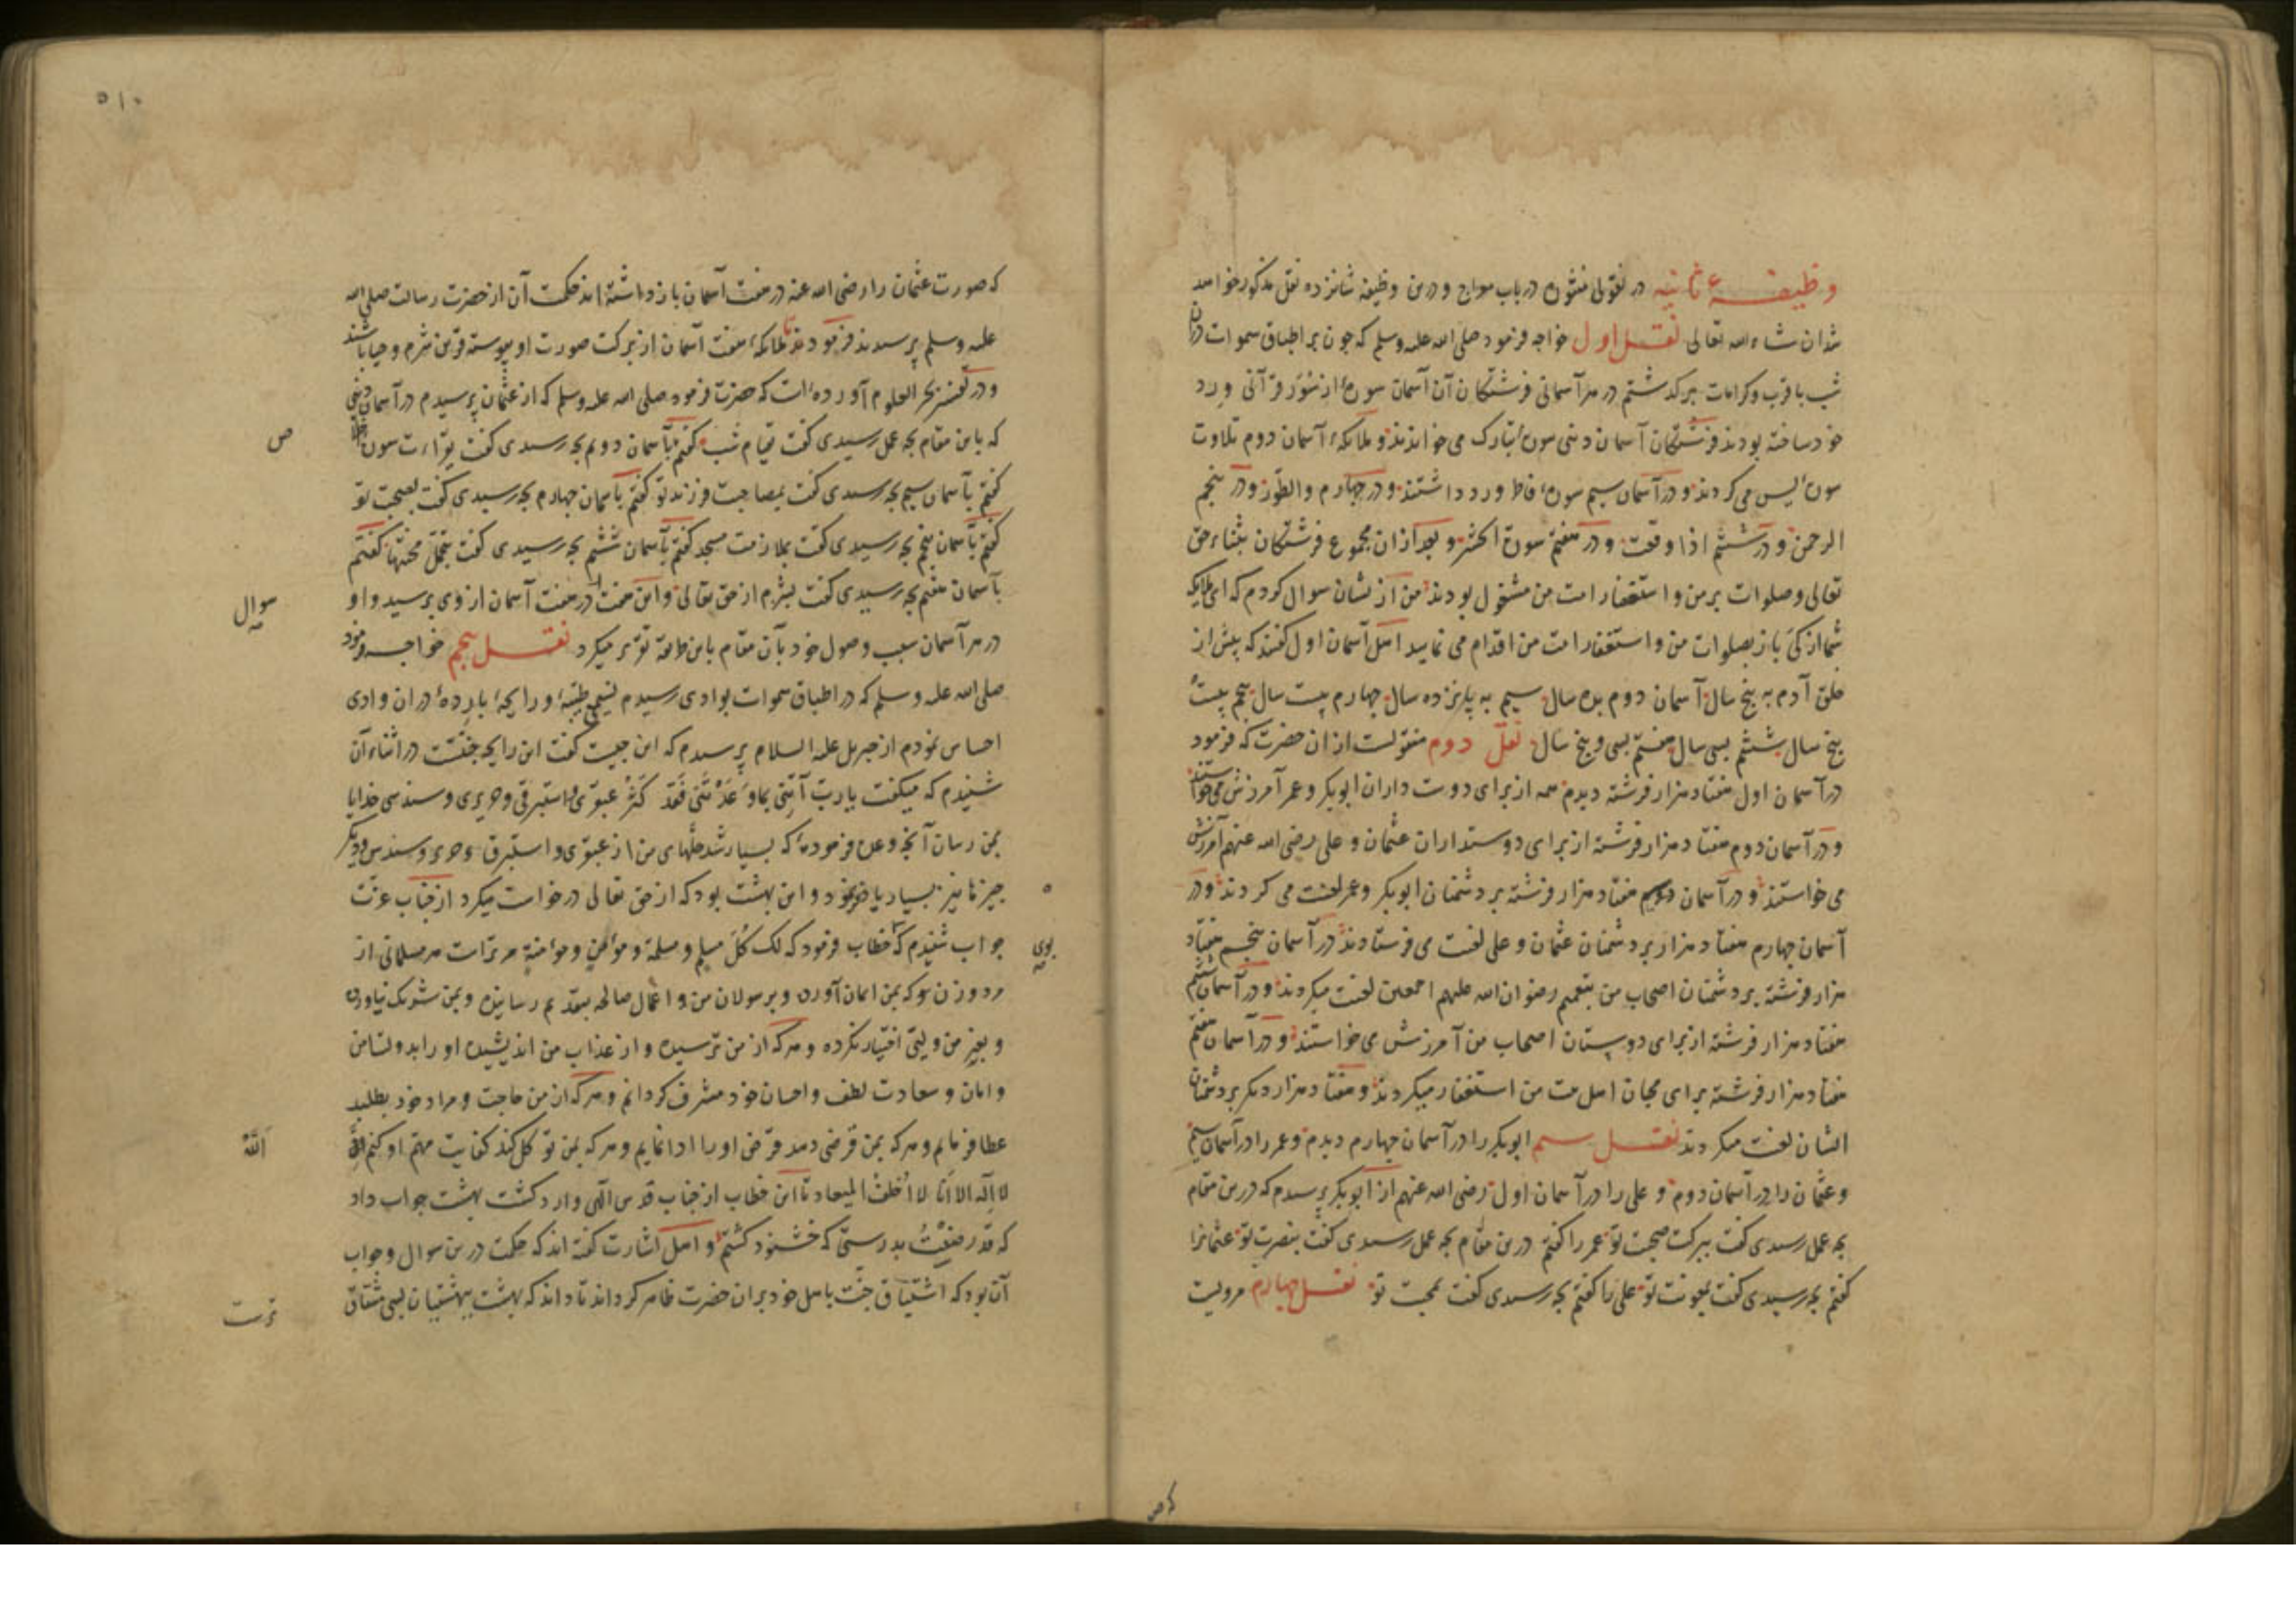 وظیفهٔ ثانیه در نقولی منثوره در باب معراج و درین وظیفه شانزده نقل مذکور خواهد
شد ان شاء الله تعالی نقل اول خواجه فرمود صلی الله علیه وسلم که چون بر اطباق سموات در آن
شب با قرب و کرامات برگذشتم در هر آسمانی فرشتگان آن آسمان سورهٔ از سُوَر قرآنی ورد
خود ساخته بودند فرشتگان آسمان دنیی سورهٔ تبارک می خواندند و ملائکهٔ آسمان دوم تلاوت
سورهٔ یٰس می کردند و در آسمان سیم سورهٔ فاطر ورد داشتند و در چهارم والطور و در پنجم
الرحمن و در ششم اذا وقعت و در هفتم سورة الحشر و بعد از ان مجموع فرشتگان بثناء حق
تعالی وصلوات بر من و استغفار امت من مشغول بودند من از یشان سوال کردم که ای ملایکه
شما از کَی باز بصلوات من و استغفار امت من اقدام می نمایید اهل آسمان اول گفتند که پیش از
خلق آدم به پنج سال آسمان دوم بده سال سیم به پانزده سال چهارم بیست سال پنجم بیست و
پنج سال ششم بسی سال هفتم بسی و پنج سال نقل دوم منقولست از ان حضرت که فرمود
در آسمان اول هفتاد هزار فرشته دیدم همه از برای دوست داران ابوبکر و عمر آمرزش می خواستند
و در آسمان دوم هفتاد هزار فرشته از برای دوستداران عثمان و علی رضی الله عنهم آمرزش
می خواستند و در آسمان سیم هفتاد هزار فرشته بر دشمنان ابوبکر و عمر لعنت می کردند و در
آسمان چهارم هفتاد هزار بر دشمنان عثمان و علی لعنت می فرستادند در آسمان پنجم هفتاد
هزار فرشته بر دشمنان اصحاب من بتعمیم رضوان الله علیهم اجمعین لعنت میکردند و در آسمان ششم
هفتاد هزار فرشته از برای دوستان اصحاب من آمرزش می خواستند و در آسمان هفتم
هفتاد هزار فرشته برای محبان اهل بیت من استغفار میکردند و هفتاد هزار دیگر بر دشمنان
ایشان لعنت میکردند نقل سیم ابوبکر را در آسمان چهارم دیدم و عمر را در آسمان سیم
و عثمان را در آسمان دوم و علی را در آسمان اول رضی الله عنهم از ابوبکر پرسیدم که درین مقام
بچه عمل رسیدی گفت ببرکت صحبت تو عمر را گفتم درین مقام بچه عمل رسیدی گفت بنصرت تو عثمانرا
گفتم بچه رسیدی گفت بمعونت تو علی را گفتم بچه رسیدی گفت بمحبت تو نقل چهارم مرویست
که ص
۵۱۰
که صورت عثمان را رضی الله عنه در هفت آسمان باز داشته اند حکمت آن از حضرت رسالت صلی الله
علیه وسلم پرسیدند فرمودند تا ملائکهٔ هفت آسمان از برکت صورت او پیوسته قرین شرم و حیا باشند
و در تفسیر بحر العلوم آورده است که حضرت فرمود صلی الله علیه وسلم که از عثمان پرسیدم در آسمان دنیی
که باین مقام بچه عمل رسیدی گفت بقیام شب گفتم بآسمان دویم بچه رسیدی گفت بقراءت سوره
ص
گفتم بآسمان سیم بچه رسیدی گفت بمصاحبت فرزند تو گفتم بآسمان چهارم بچه رسیدی گفت بصحبت تو
گفتم بآسمان پنجم بچه رسیدی گفت بملازمت مسجد گفتم بآسمان ششم بچه رسیدی گفت بتحمل محنتها گفتم
بآسمان هفتم بچه رسیدی گفت بشرم از حق تعالی و این هفت در هفت آسمان از وی پرسید و او
سوال
در هر آسمان سبب وصول خود بآن مقام باین طاعة تقریر میکرد نقل پنجم خواجه فرمود
صلی الله علیه وسلم که در اطباق سموات بوادی رسیدم نسیمی طیبهٔ و رایحهٔ باردهٔ در ان وادی
احساس نمودم از جبریل علیه السلام پرسیدم که این چیست گفت این رایحه جنّتست در اثناء آن
شنیدم که میگفت یا ربّ آتِنی بما وَعَدْتَنی فَقَد کَثُرَ عبقری و استبرقی و حریری و سندسی خدایا
بمن رسان آنچه وعده فرمودهٔ که بسیار شد حلّهای من از عبقری و استبرق و حریر و سندس و دیگر
چیزها نیز بسیار و این بهشت بود که از حق تعالی درخواست میکرد از جناب عزّت
جواب شنیدم که خطاب فرمود که لک کُلّ مسلم و مسلمة و مؤمنٍ و مؤمنةٍ مر تراست هر مسلمانی از
بوی
مرد و زن و که بمن ایمان آورده و برسولان من و اعمال صالحه بتقدیم رسانیده و بمن شریک نیاورده
و بغیر من ولیّی اختیار نکرده و هر که از من ترسیده و از عذاب من اندیشیده او را بدولت امن
و امان و سعادت لطف و احسان خود مشرف گردانم و هر که از من حاجت و مراد خود بطلبد
عطا فرمایم و هر که بمن قرض دهد قرض او را ادا نمایم و هر که بمن توکل کند کفایت مهم او کنم
اَللّٰهُ
لا اِلٰه الا اَنَا لا اُخلف المیعاد تا این خطاب از جناب قدس الٰهی وارد گشت بهشت جواب داد
که قد رضیتُ بدرستی که خشنود گشتم و اهل اشارت گفته اند که حکمت درین سوال و جواب
آن بود که اشتیاق جنّت باهل خود بر ان حضرت ظاهر گرداند تا داند که بهشت ببهشتیان بسی مشتاق
ترست